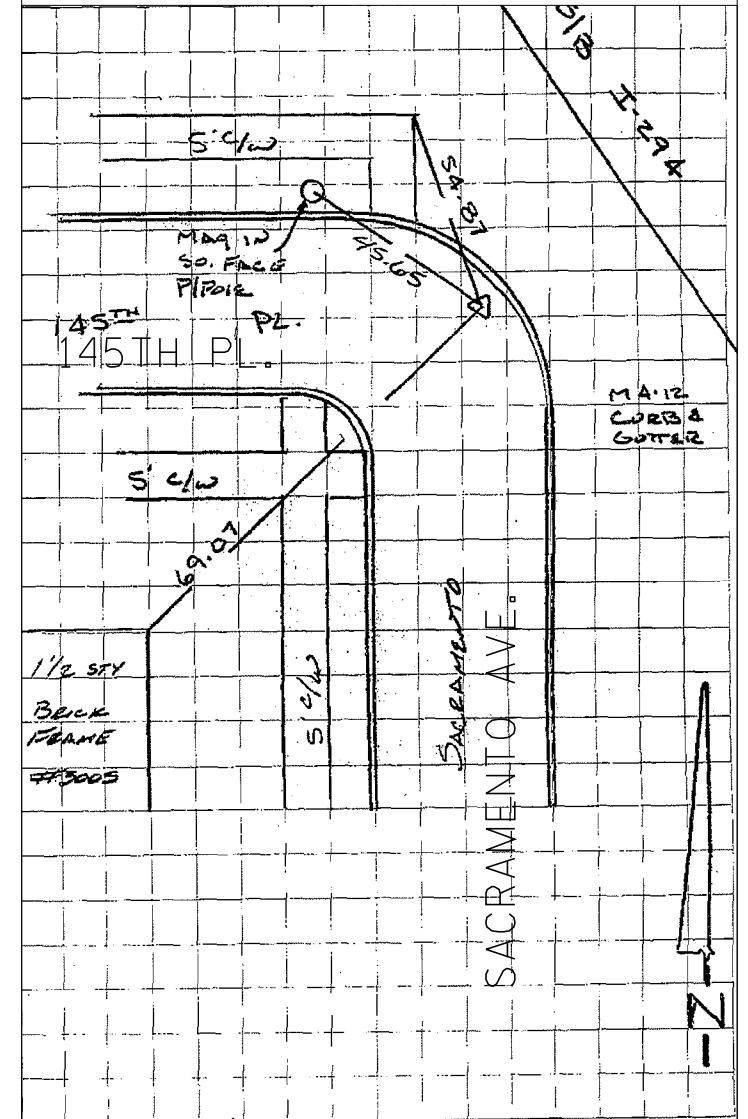 S/B I-294
5' C/W
54.87
45.65
MAG IN
SO. FACE
P/POLE
145TH PL.
145TH PL.
MA-12
CURB &
GUTTER
5' C/W
69.07
1 1/2 STY
BRICK
FRAME
#3005
5' C/W
SACRAMENTO
SACRAMENTO AVE.
N